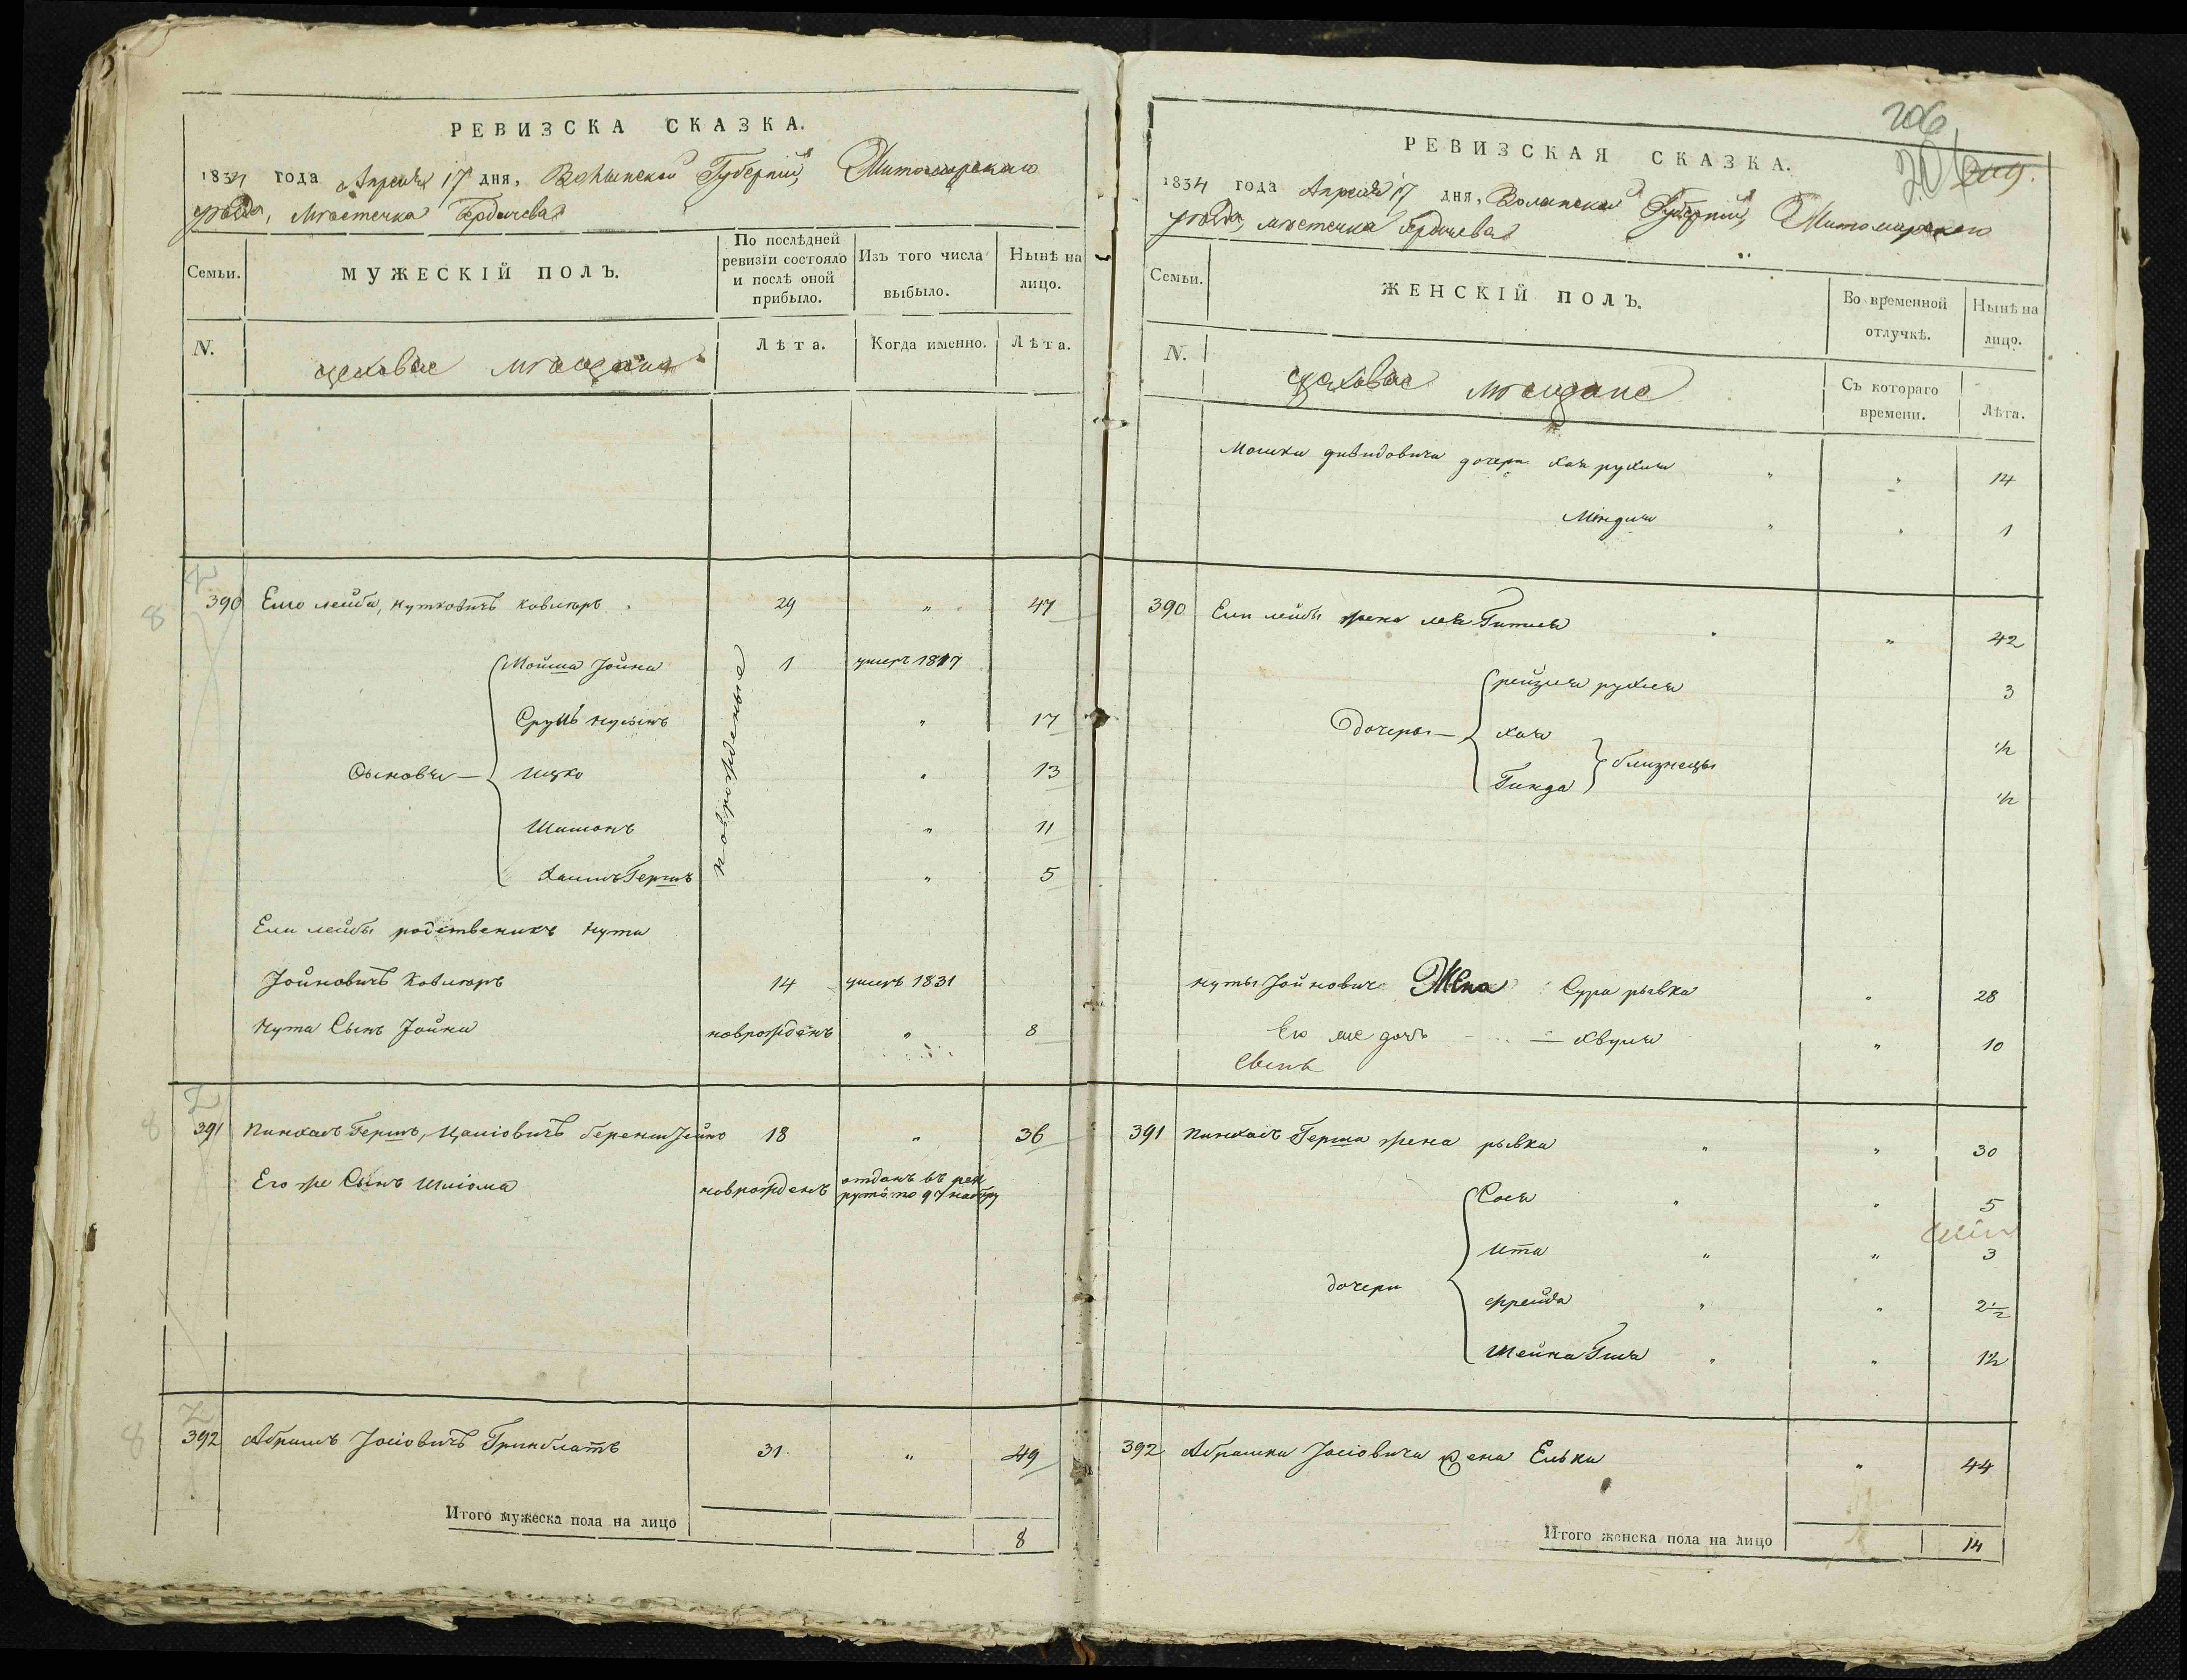 РЕВИЗСКА СКАЗКА.
1834 года Апреля 17 дня, Волынской Губерніи, Житомирскаго
уѣзда, мѣстечка Бердичева
Семьи.
МУЖЕСКІЙ ПОЛЪ.
По послѣдней ревизіи состояло и послѣ оной прибыло.
Изъ того числа выбыло.
Нынѣ на лицо.
N.
Лѣта.
Когда именно.
Лѣта.
цеховые мѣщане
390 Елю лейба, Нутковичъ Ковляръ 29 " 47
Мойша Јойна 1 умеръ 1817
Сруль Нусинъ " 17
Сыновья Ицко " 13
Шимонъ " 11
Хаимъ Гершъ " 5
новрожденые
Ели лейбы родственикъ Нута
Јойновичъ Ковляръ 14 умеръ 1831
Нута Сынъ Јойна новрожденъ " 8
391 Пинхасъ Гершъ, 18 " 36
Его же Сынъ Шліома новрожденъ отданъ въ рек
руты по 97 набору
392 Абрамъ Јосіовичъ Гринблатъ 31 " 49
Итого мужеска пола на лицо 8
206
РЕВИЗСКАЯ СКАЗКА.
1834 года Апреля 17 дня, Волынской Губерніи, Житомирскаго
уѣзда, мѣстечка Бердичева
Семьи.
ЖЕНСКІЙ ПОЛЪ.
Во временной отлучкѣ.
Нынѣ на лицо.
N.
Съ котораго времени.
Лѣта.
цеховые мѣщане
Мошки дивидовича дочери Хая рухля " " 14
Миндля " " 1
390 Ели лейбы жена лея Гитля " " 42
рейзля рухля 3
Дочеры Хая 1/2
Гинда близнецы 1/2
Нуты Јойновича Жена Сура рывка " 28
Его же дочь Хвуля " 10
391 Пинхасъ Герша жена рывка " " 30
Сося " " 5
Ита " " 3
дочери фрейда " " 2 1/2
Шейна Гиля " " 1 1/2
392 Абрамка Јосіовича жена Елька " 44
Итого женска пола на лицо 14